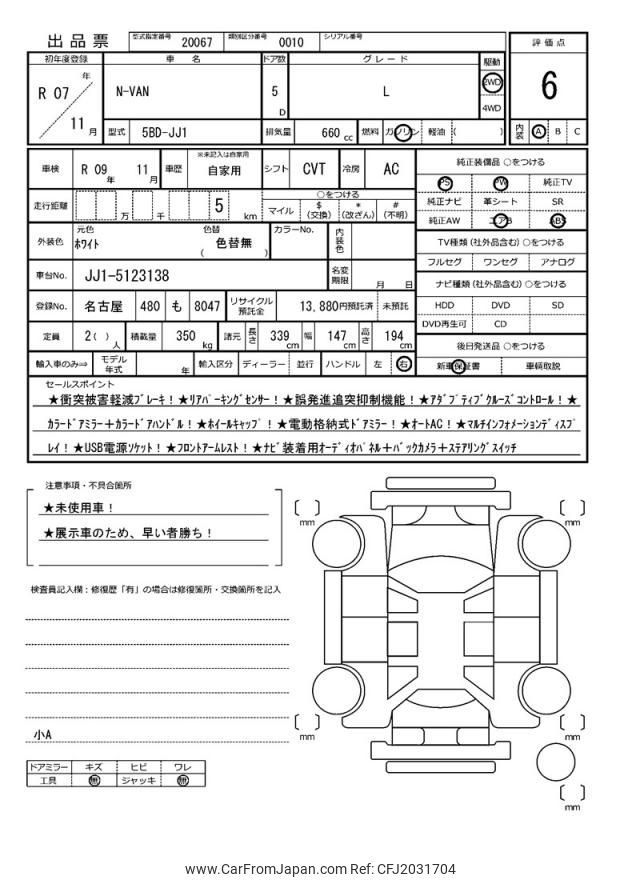 出品票 型式指定番号 20067 類別区分番号 0010 シリアル番号
初年度登録 車名 ドア数 グレード 駆動 評価点
R 07 年 11 月 N-VAN 5 D L 2WD 4WD 6
型式 5BD-JJ1 排気量 660 cc 燃料 ガソリン 軽油 ( ) 内装 A B C
車検 R 09 年 11 月 車歴 ※未記入は自家用 自家用 シフト CVT 冷房 AC 純正装備品 ○をつける
PS PW 純正TV
走行距離 万 千 5 km ○をつける マイル $ (交換) * (改ざん) # (不明) 純正ナビ 革シート SR
純正AW エアB ABS
外装色 元色 ホワイト 色替 色替無 ( ) カラーNo. 内装色 TV種類 (社外品含む) ○をつける
フルセグ ワンセグ アナログ
車台No. JJ1-5123138 名変期限 月 日 ナビ種類 (社外品含む) ○をつける
登録No. 名古屋 480 も 8047 リサイクル預託金 13,880円預託済 未預託 HDD DVD SD
DVD再生可 CD
定員 2( ) 人 積載量 350 kg 諸元 長さ 339 cm 幅 147 cm 高さ 194 cm 後日発送品 ○をつける
輸入車のみ⇒ モデル年式 年 輸入区分 ディーラー 並行 ハンドル 左 右 新車保証書 車輌取説
セールスポイント
★衝突被害軽減ブレーキ！★リアパーキングセンサー！★誤発進追突抑制機能！★アダプティブクルーズコントロール！★
カラードアミラー＋カラードアハンドル！★ホイールキャップ！★電動格納式ドアミラー！★オートAC！★マルチインフォメーションディスプ
レイ！★USB電源ソケット！★フロントアームレスト！★ナビ装着用オーディオパネル＋バックカメラ＋ステアリングスイッチ
注意事項・不具合箇所
★未使用車！
★展示車のため、早い者勝ち！
検査員記入欄：修復歴「有」の場合は修復箇所・交換箇所を記入
小A
ドアミラー キズ ヒビ ワレ
工具 無 ジャッキ 無
mm
mm
mm
mm
mm
www.CarFromJapan.com Ref: CFJ2031704